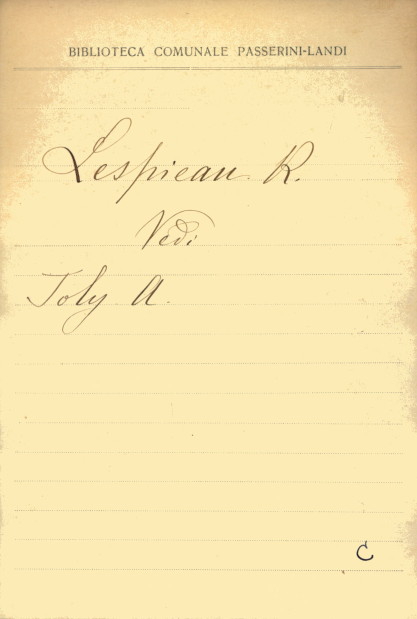 BIBLIOTECA COMUNALE PASSERINI-LANDI
Lespieau R.
Vedi
Joly A.
C